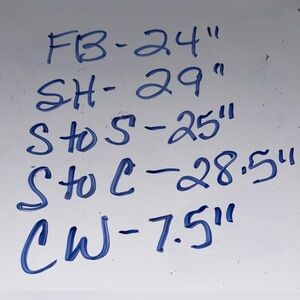 FB-24"
SH-29"
S to S-25"
S to C-28.5"
CW-7.5"